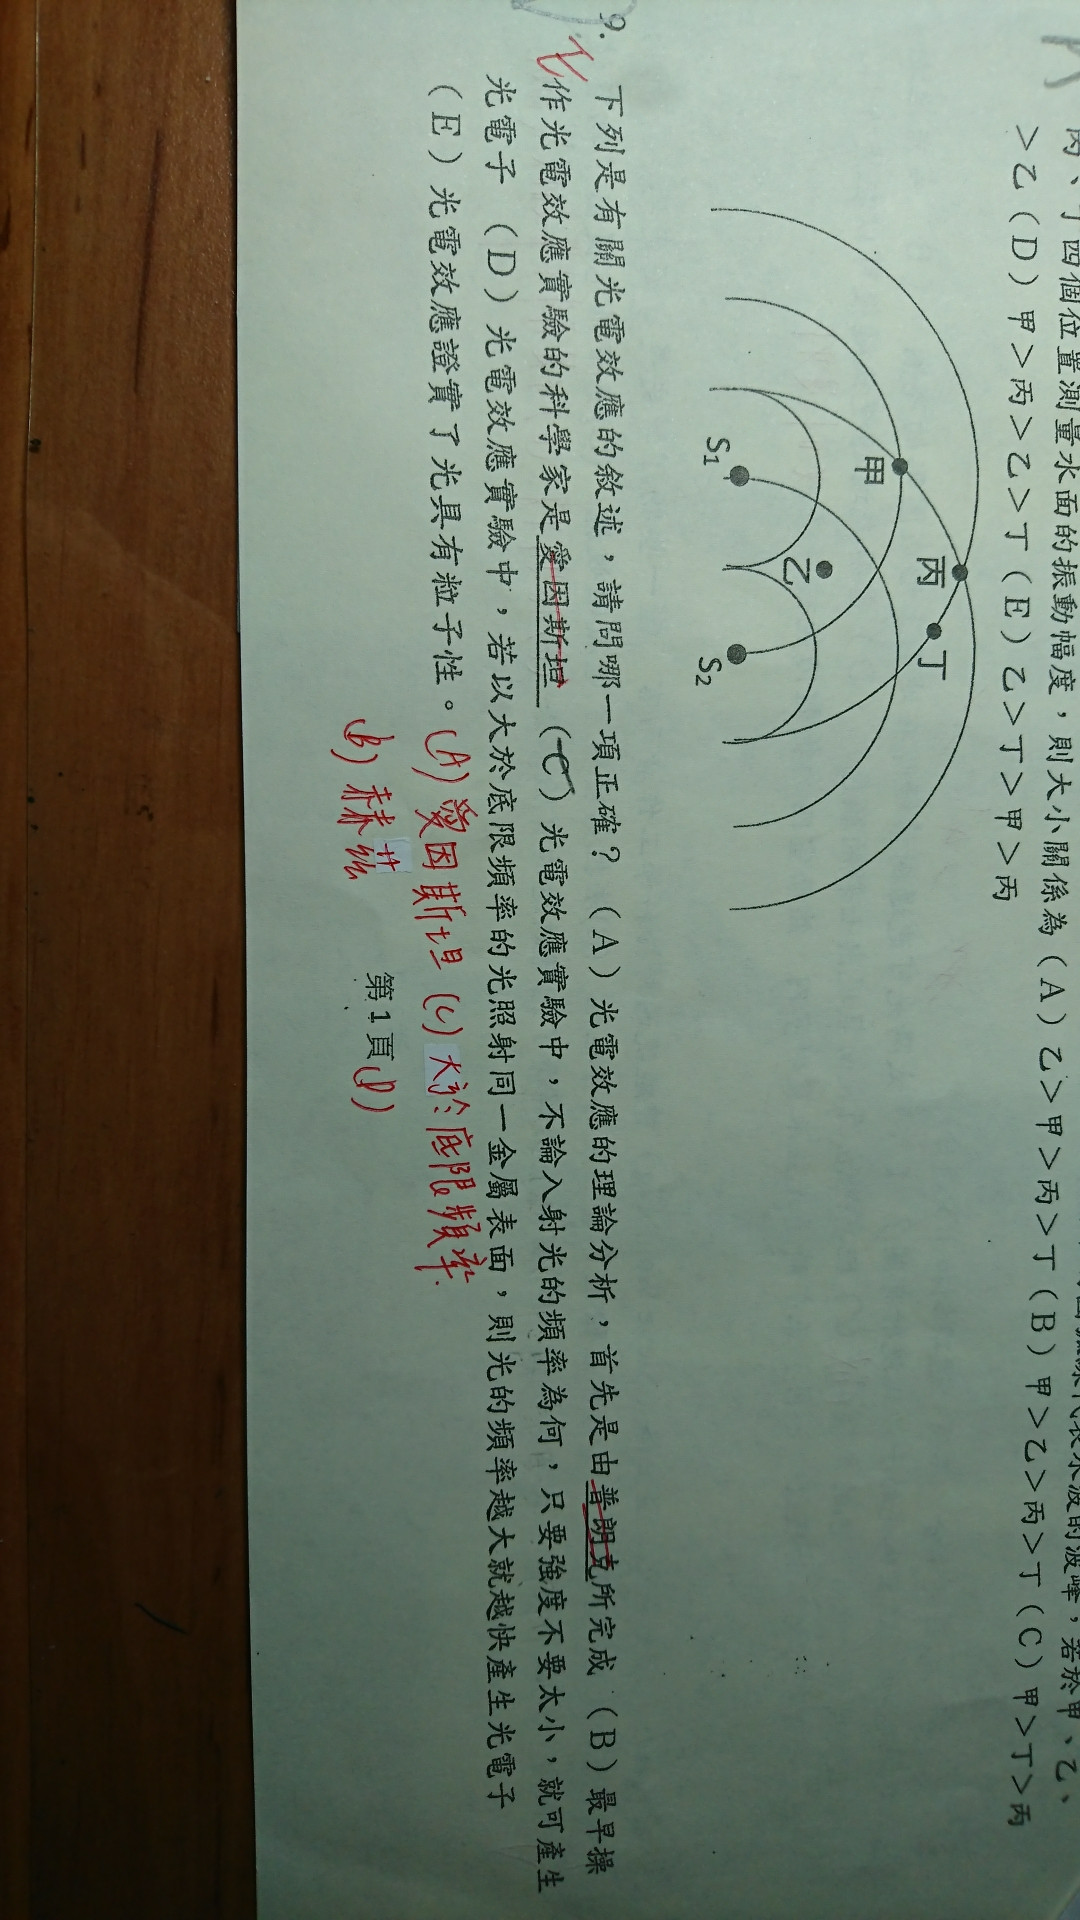 丙、丁四個位置測量水面的振動幅度，則大小關係為（A）乙＞甲＞丙＞丁（B）甲＞乙＞丙＞丁（C）甲＞丁＞丙
＞乙（D）甲＞丙＞乙＞丁（E）乙＞丁＞甲＞丙
甲
丙
丁
乙
S₁
S₂
9. 下列是有關光電效應的敘述，請問哪一項正確？（A）光電效應的理論分析，首先是由普朗克所完成（B）最早操
作光電效應實驗的科學家是愛因斯坦（C）光電效應實驗中，不論入射光的頻率為何，只要強度不要太小，就可產生
光電子（D）光電效應實驗中，若以大於底限頻率的光照射同一金屬表面，則光的頻率越大就越快產生光電子
（E）光電效應證實了光具有粒子性。
(A) 愛因斯坦 (C) 大於底限頻率.
(B) 赫茲
第1頁
(D)